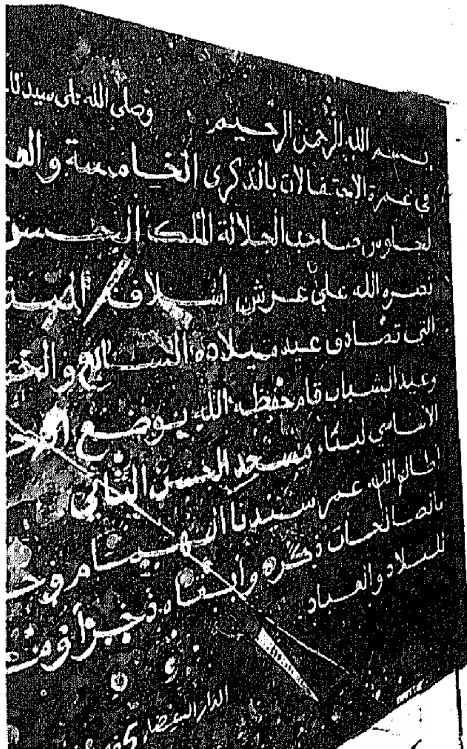 بسم الله الرحمن الرحيم وصلى الله على سيدنا
في غمرة الاحتفالات بالذكرى الخامسة
لجلوس صاحب الجلالة الملك الحسن
نصره الله على عرش أسلافه
التي تصادف عيد ميلاده السابع
وعيد الشباب قام حفظه الله بوضع
الأساسي لبناء مسجد الحسن الثاني
أطال الله عمر سيدنا الهمام
بالصالحات ذكره وأبقاه ذخرا
للبلاد والعباد.
الدار البيضاء 5